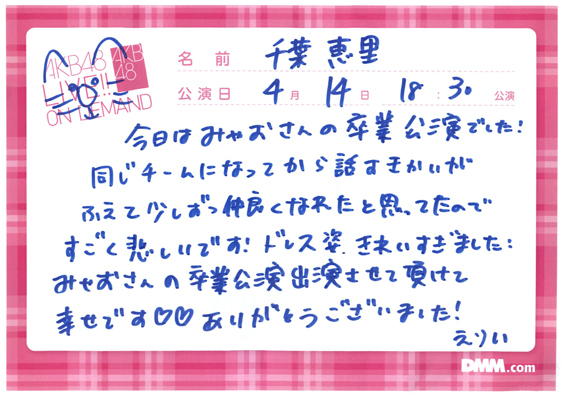 AKB48
LIVE!!
ON DEMAND
AKB
48
名前 千葉 恵里
公演日 4月 14日 18:30 公演
今日はみゃおさんの卒業公演でした!
同じチームになってから話すきかいが
ふえて少しずつ仲良くなれたと思ってたので
すごく悲しいです!ドレス姿、きれいすぎました:
みゃおさんの卒業公演出演させて頂けて
幸せです♡♡ありがとうございました!
えりい
DMM.com